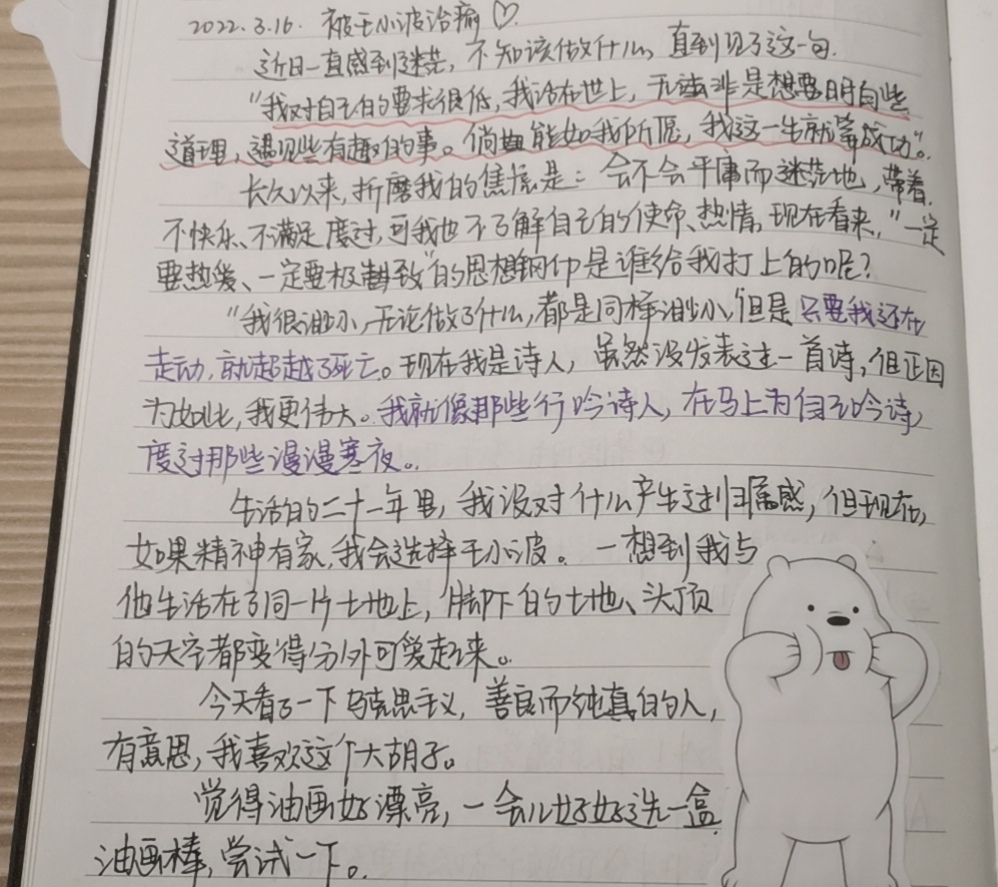 2022.3.16. 被王小波治愈♡.
近日一直感到迷茫, 不知该做什么, 直到见了这一句.
“我对自己的要求很低, 我活在世上, 无非是想要明白些
道理, 遇见些有趣的事。倘能如我所愿, 我这一生就算成功”。
长久以来, 折磨我的焦虑是: 会不会平庸而迷茫地, 带着
不快乐、不满足度过, 可我也不了解自己的使命、热情, 现在看来, “一定
要热爱、一定要极致”的思想钢印是谁给我打上的呢?
“我很渺小, 无论做了什么, 都是同样渺小, 但是只要我还在
走动, 就超越了死亡。现在我是诗人, 虽然没发表过一首诗, 但正因
为如此, 我更伟大。我就像那些行吟诗人, 在马上为自己吟诗,
度过那些漫漫寒夜。
生活的二十一年里, 我没对什么产生过归属感, 但现在,
如果精神有家, 我会选择王小波。一想到我与
他生活在了同一片土地上, 脚下的土地、头顶
的天空都变得分外可爱起来。
今天看了一下马克思主义, 善良而纯真的人,
有意思, 我喜欢这个大胡子。
觉得油画好漂亮, 一会儿好好选一盒
油画棒, 尝试一下。